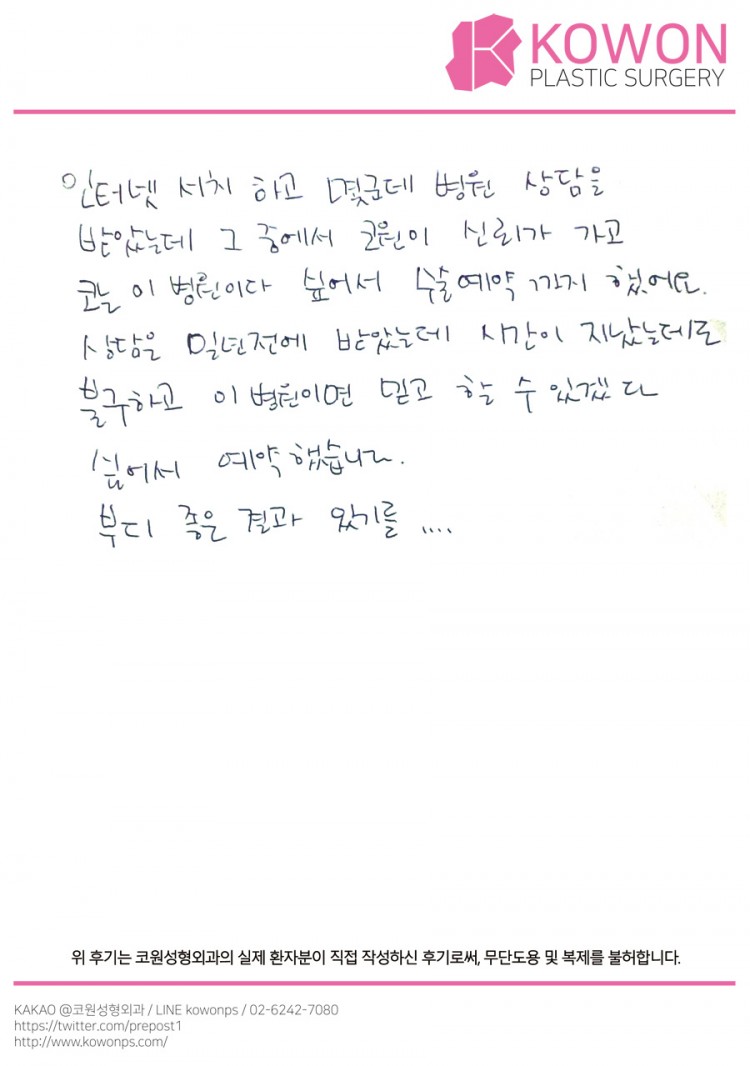 KOWON
PLASTIC SURGERY
인터넷 서치 하고 몇군데 병원 상담을
받았는데 그 중에서 코원이 신뢰가 가고
이 병원이다 싶어서 수술예약 까지 했어요.
상담은 일년전에 받았는데 시간이 지났는데도
불구하고 이 병원이면 믿고 할 수 있겠다
싶어서 예약했습니다.
부디 좋은 결과 있기를 ....
위 후기는 코원성형외과의 실제 환자분이 직접 작성하신 후기로써, 무단도용 및 복제를 불허합니다.
KAKAO @코원성형외과 / LINE kowonps / 02-6242-7080
https://twitter.com/prepost1
http://www.kowonps.com/